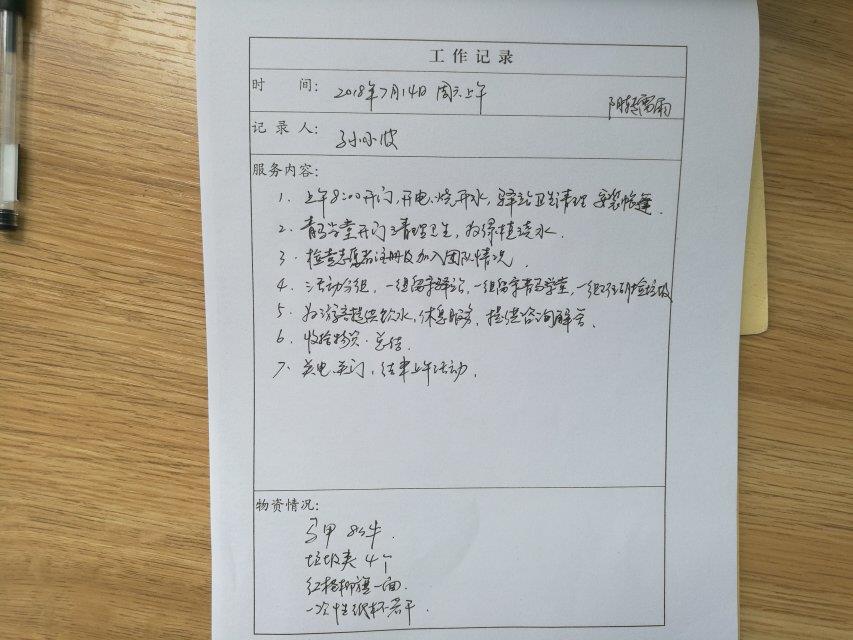 工作记录
时 间: 2018年7月14日 周六上午 阴转雷雨
记录人: 孙小波
服务内容:
1. 上午8:00开门,开电.烧开水,驿站卫生清理 安装帐篷.
2. 青马学堂开门清理卫生,为绿植浇水.
3. 检查志愿者注册及加入团队情况.
4. 活动分组,一组留守驿站,一组留守青马学堂,一组捡垃圾
5. 为游客提供饮水,休息服务,提供咨询解答.
6. 收拾物资.总结.
7. 关电.关门,结束上午活动.
物资情况:
马甲 8件.
垃圾夹 4个
红柳旗一面.
一次性纸杯若干.